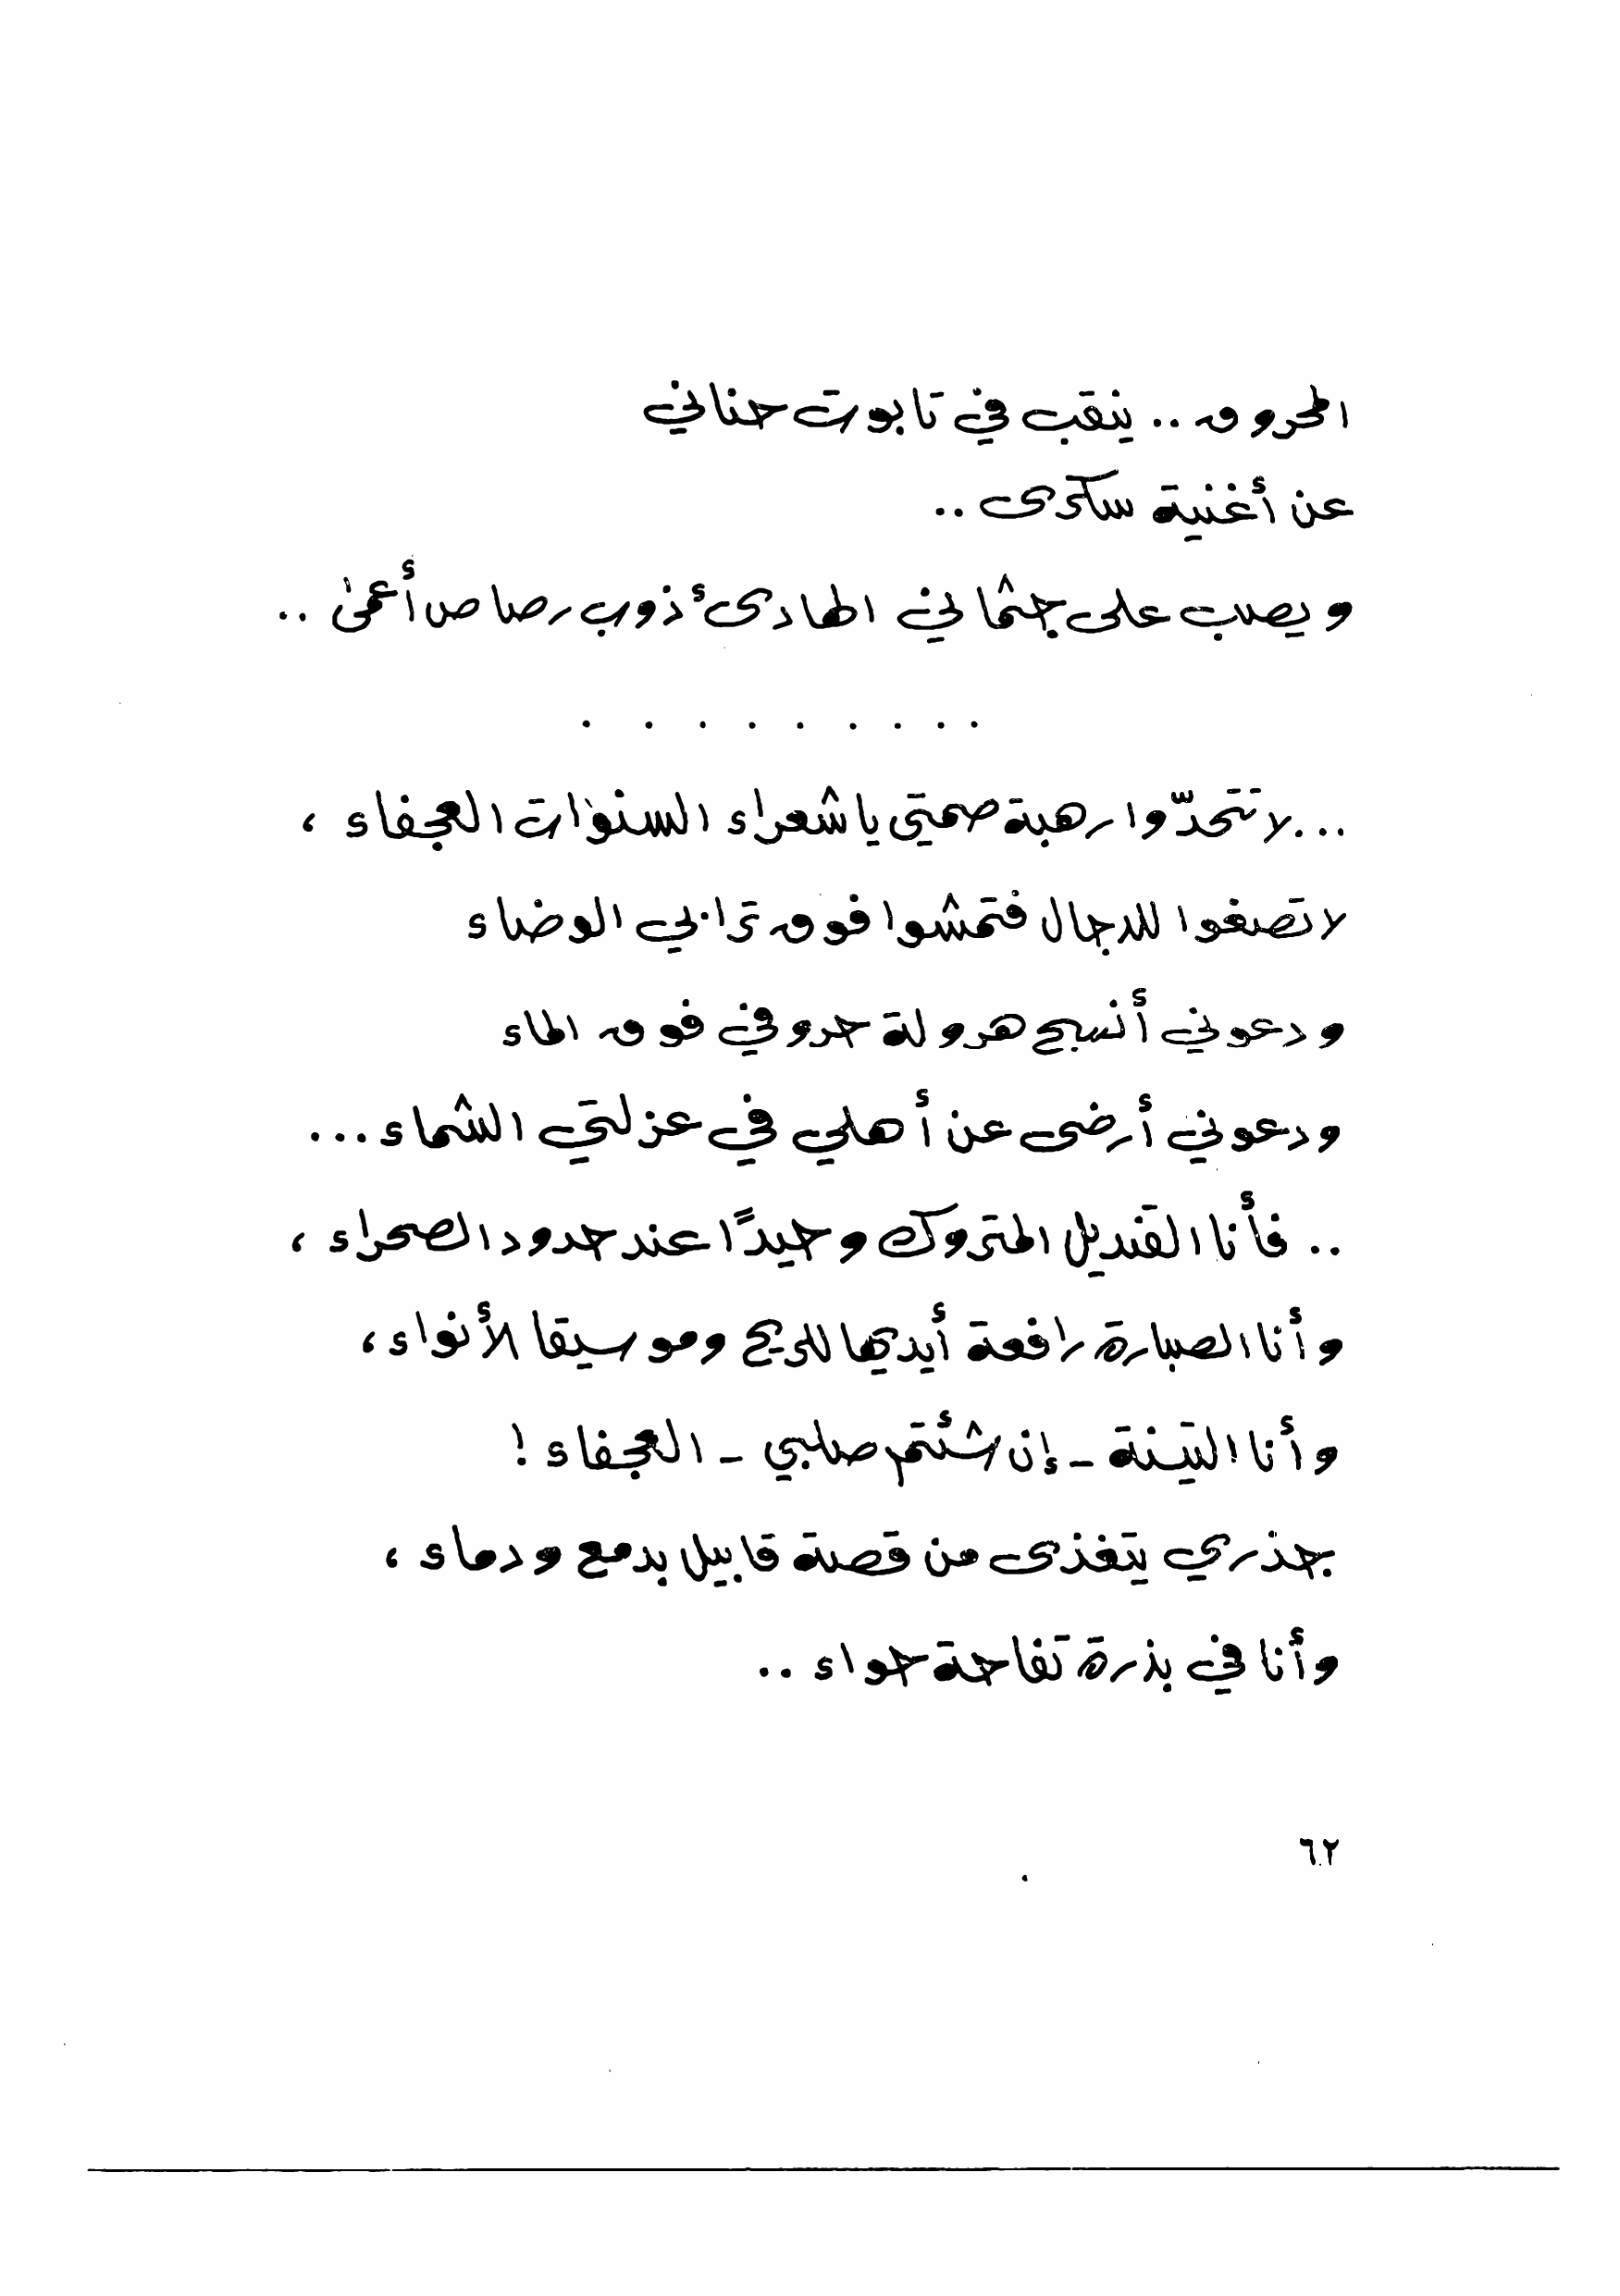 المحروق .. ينقب في تابوت حناني
عن أغنية سكرى ..
ويصب على جثماني الهادئ ذوب رصاص أعمى ..
. . . . . . . . .
...لا تتحدّوا رهبة صمتي يا شعراء السنوات العجفاء ،
لا تصغوا للدجال فتمشوا فوق ترابي الوضاء
ودعوني أنسج هرولة حروفي فوق الماء
ودعوني أرضى عن أهلي في عزلتي الشماء ...
.. فأنا القنديل المتروك وحيدًا عند حدود الصحراء ،
وأنا الصبارة رافعة أيديها للريح وموسيقا الأنواء ،
وأنا التينة - إن شئتم صلبي - العجفاء !
جذري يتغذى من قصة قابيل بدمع ودماء ،
وأنا في بذرة تفاحة حواء ..
٦٢